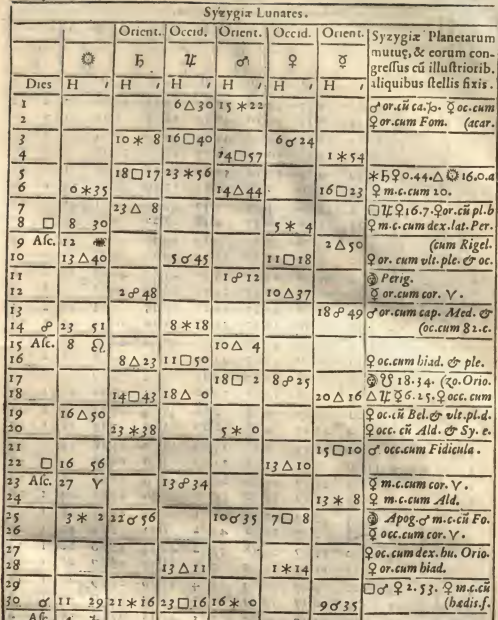 Syzygiæ Lunares.
Orient. Occid. Orient. Occid. Orient. Syzygiæ Planetarum
☉ ♄ ♃ ♂ ♀ ☿ mutuę, & eorum con-
gressus cū illustriorib.
Dies H ′ H ′ H ′ H ′ H ′ H ′ aliquibus stellis fixis.
1 6 △ 30 15 ✶ 22 ♂ or.cū ca.♑. ☿ oc.cum
2 ♀ or.cum Fom. (acar.
3 10 ✶ 8 16 □ 40 6 ☌ 24
4 14 □ 57 1 ✶ 54
5 18 □ 17 23 ✶ 56 ✶ ♄ ♀ 0.44. △ ☉ 16.0.a
6 0 ✶ 35 14 △ 44 16 □ 23 ♀ m.c.cum 20.
7 23 △ 8 □ ♃ ♀ 16.7. ♀ or.cū pl.b
8 □ 8 30 5 ✶ 4 ♀ m.c.cum dex.lat.Per.
9 Asc. 12 2 △ 50 (cum Rigel.
10 13 △ 40 5 ☌ 45 11 □ 18 ♀ or. cum vlt. ple. & oc.
11 1 ☍ 12 ☽ Perig.
12 2 ☍ 48 10 △ 37 ☿ or.cum cor. ♈.
13 18 ☍ 49 ♂ or.cum cap. Med. &
14 ☍ 23 51 8 ✶ 18 (oc.cum 82.c.
15 Asc. 8 ♌ 10 △ 4
16 8 △ 23 11 □ 50 ♀ oc.cum hiad. & ple.
17 18 □ 2 8 ☍ 25 ☽ ☋ 18.34. (zo.Orio.
18 14 □ 43 18 △ 0 20 △ 16 △ ♃ ☿ 6.25. ♀ occ. cum
19 16 △ 50 ♀ oc.cū Bel. & vlt.pl.d.
20 23 ✶ 38 5 ✶ 0 ♀ occ. cū Ald. & Sy. e.
21 15 □ 10 ♂ occ.cum Fidicula.
22 □ 16 56 13 △ 10
23 Asc. 27 ♈ 13 ☍ 34 ☿ m.c.cum cor. ♈.
24 13 ✶ 8 ♀ m.c.cum Ald.
25 3 ✶ 2 22 ☌ 56 10 ☌ 35 7 □ 8 ☽ Apog. ♂ m.c.cū Fo.
26 ☿ occ.cum cor. ♈.
27 ♀ oc.cum dex.hu. Orio.
28 13 △ 11 1 ✶ 14 ♀ or.cum hiad.
29 □ ♂ ♀ 2.53. ♀ m.c.cū
30 ☌ 11 29 21 ✶ 16 23 □ 16 16 ✶ 0 9 ☌ 35 (hædis.f.